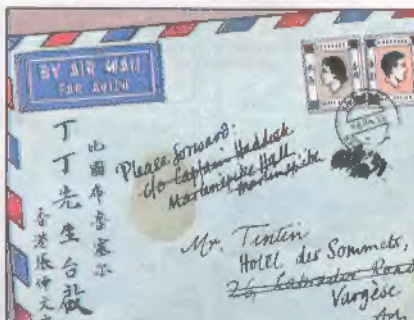 BY AIR MAIL
PAR AVION
比國布魯塞尔
丁丁先生台啟
香港張仲文
Please forward:
c/o Captain Haddock
Marlinspike Hall
Marlinspike
Mr. Tintin
Hotel des Sommets,
26, Labrador Road
Vargèse